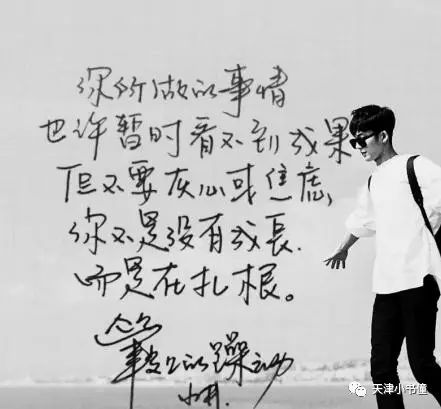 你所做的事情
也许暂时看不到成果
但不要灰心或焦虑,
你不是没有成長.
而是在扎根。
笔尖上的躁动
天津小书童